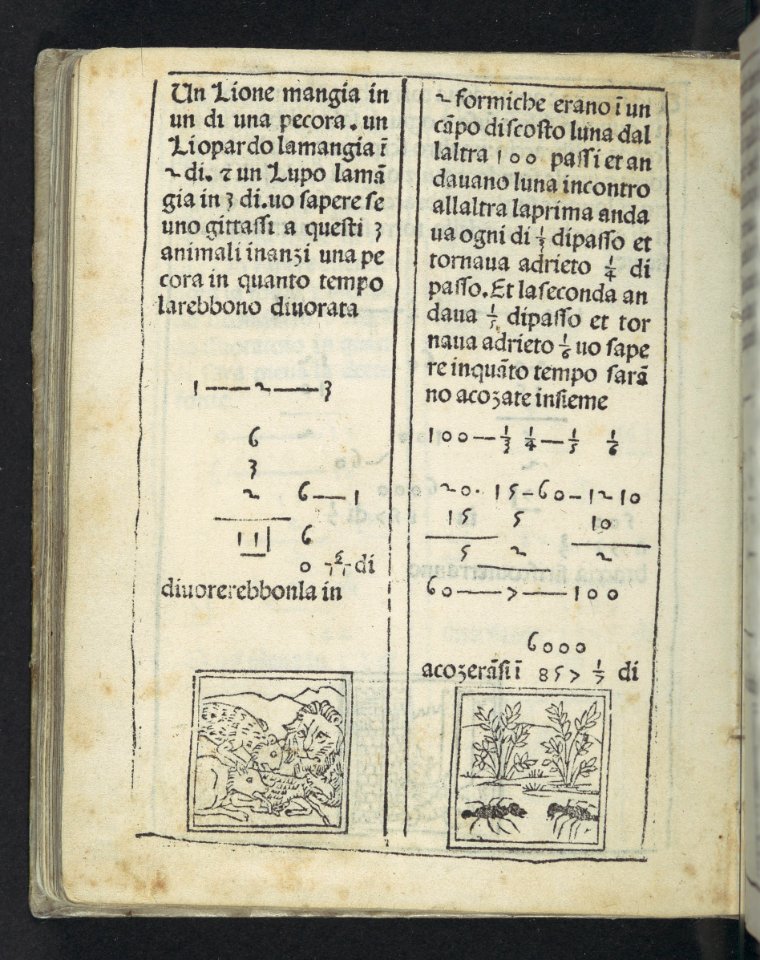 Un Lione mangia in
un di una pecora. un
Liopardo lamangia ĩ
2 di. ⁊ un Lupo lamã
gia in 3 di.uo sapere se
uno gittassi a questi 3
animali inanzi una pe
cora in quanto tempo
larebbono diuorata
1 — 2 — 3
6
3
2 6 — 1
11 6
0 6/11 di
diuorerebbonla in
2 formiche erano ĩ un
cãpo discosto luna dal
laltra 100 passi et an
dauano luna incontro
allaltra laprima anda
ua ogni di 1/3 dipasso et
tornaua adrieto 1/4 di
passo. Et laseconda an
daua 1/5 dipasso et tor
naua adrieto 1/6 uo sape
re inquãto tempo sarã
no acozate insieme
100 — 1/3 1/4 — 1/5 1/6
20. 15 — 60 — 12 10
15 5 10
5 2 2
60 — 7 — 100
6000
acozerãsi ĩ 857 1/7 di